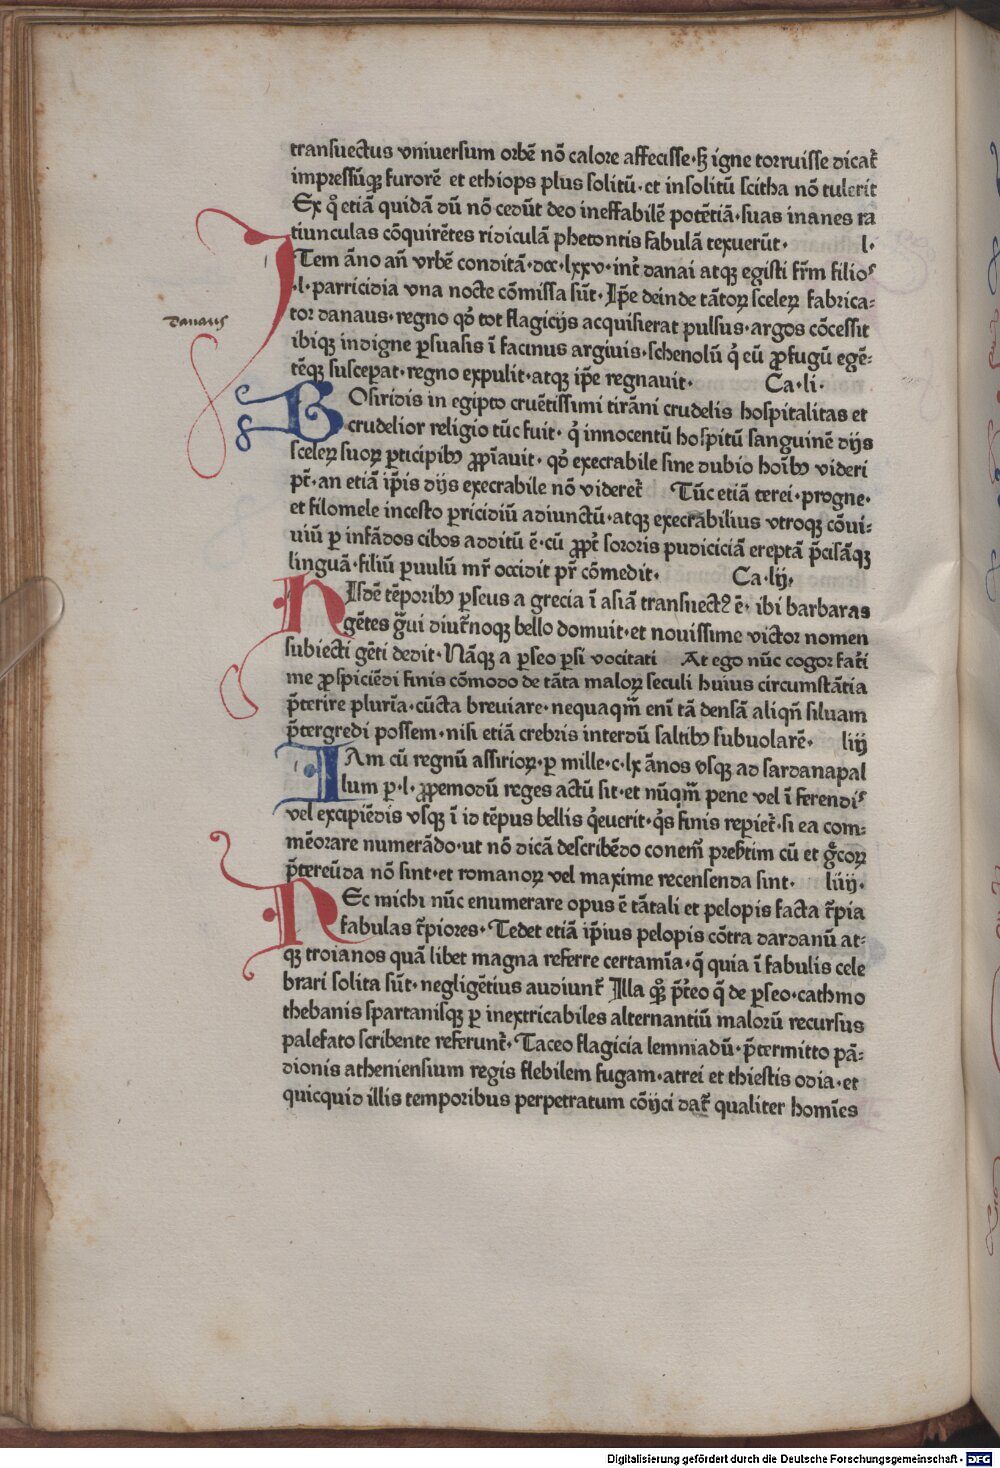 transuectus vniuersum orbē nō calore affecisse·sꝫ igne torruisse dicat᷑
impressūqꝫ furorē et ethiops plus solitū·et insolitū scitha nō tulerit
Ex qͦ etiā quidā dū nō cedūt deo ineffabilē potētiā·suas inanes ra
tiunculas cōquirētes ridiculā phetontis fabulā texuerūt· l·
ITem āno an̄ vrbē conditā·dcc·lxxv·int᷑ danai atqꝫ egisti fr̄m filioˢ
·l·parricidia vna nocte cōmissa sūt·Ip̄e deinde tātoꝝ sceleꝝ fabrica-
danaus
tor danaus·regno qd̓ tot flagicijs acquisierat pulsus·argos cōcessit
ibiqꝫ indigne ꝑsuasis ī facinus argiuis·schenolū q̇ eū ꝓfugū egē-
tēqꝫ susceperat·regno expulit·atqꝫ ip̄e regnauit· Ca·li·
BOsiridis in egipto cruētissimi tirāni crudelis hospitalitas et
crudelior religio tūc fuit·q̇ innocentū hospitū sanguinē dijs
sceleꝝ suoꝝ ꝑticipibꝰ ꝓpīauit·qd̓ execrabile sine dubio hoībꝰ videri
pt̄·an etiā ip̄is dijs execrabile nō videret᷑ Tūc etiā terei·progne·
et filomele incesto ꝑricidiū adiunctū·atqꝫ execrabilius vtroqꝫ cōui-
uiū ꝑ infādos cibos additū ē·cū ꝓpt᷑ sororis pudiciciā ereptā p̄cisāqꝫ
linguā·filiū ꝑuulū mr̄ occidit pr̄ cōmedit· Ca·lij·
HIsdē tēporibꝰ ꝑseus a grecia ī asiā transuectꝰ ē·ibi barbaras
gētes g̃ui diut᷑noqꝫ bello domuit·et nouissime victor nomen
subiecti gēti dedit·Nāqꝫ a ꝑseo ꝑsi vocitati At ego nūc cogor fat᷑i
me ꝓspiciēdi finis cōmodo de tāta maloꝝ seculi huius circumstātia
p̄terire plurīa·cūcta breuiare·nequaqm̄ enī tā densā aliqn̄ siluam
p̄tergredi possem·nisi etiā crebris interdū saltibꝰ subuolarē· liij
IAm cū regnū assirioꝝ·ꝑ mille·c·lx ānos vsqꝫ ad sardanapal
lum ꝑ·l·ꝓpemodū reges actū sit·et nūqm̄ pene vel ī ferendiˢ
vel excipiēdis vsqꝫ ī id tēpus bellis q̇euerit·q̇s finis reꝑiet᷑·si ea com-
mēorare numerādo·ut nō dicā describēdo conem᷑ presertim cū et g̃coꝝ
p̄tereūda nō sint·et romanoꝝ vel maxime recensenda sint· liiij·
NEc michi nūc enumerare opus ē tātali et pelopis facta t᷑pia
fabulas t᷑piores·Tedet etiā ip̄ius pelopis cōtra dardanū at-
qꝫ troianos quā libet magna referre certamīa·q̄ quia ī fabulis cele
brari solita sūt·negligētius audiunt᷑ Illa qꝫ p̄t᷑eo q̄ de ꝑseo·cathmo
thebanis spartanisqꝫ ꝑ inextricabiles alternantiū malorū recursus
palefato scribente referunt᷑·Taceo flagicia lemniadū·p̄termitto pā-
dionis atheniensium regis flebilem fugam·atrei et thiestis odia·et
quicquid illis temporibus perpetratum cōijci dat᷑ qualiter homīes
Digitalisierung gefördert durch die Deutsche Forschungsgemeinschaft - DFG